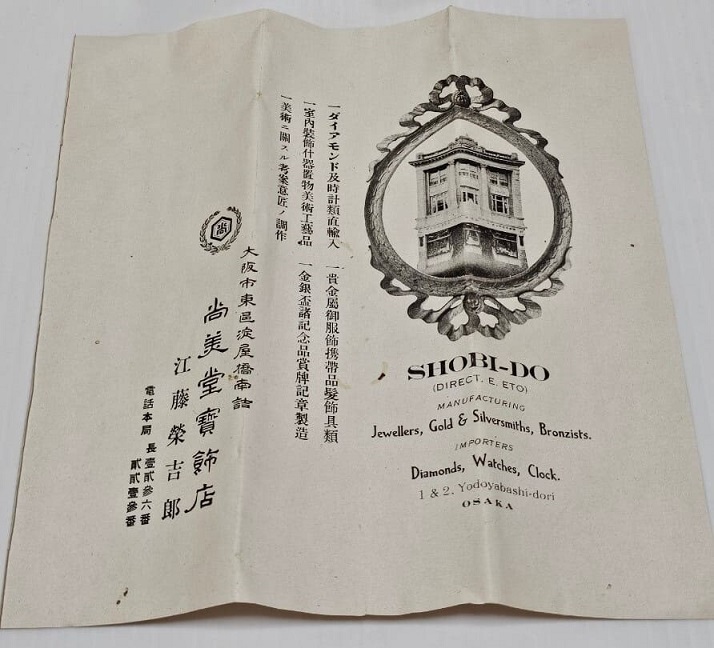 一ダイアモンド及時計類直輸入
一貴金屬御服飾携帶品髮飾具類
一室內裝飾什器置物美術工藝品
一金銀盃諸記念品賞牌記章製造
一美術ニ關スル考案意匠ノ調作
尚
大阪市東區淀屋橋南詰
尚美堂寶飾店
江藤榮吉郎
電話本局
長壹貳參六番
貳貳壹參番
SHOBI-DO
(DIRECT. E. ETO)
MANUFACTURING
Jewellers, Gold & Silversmiths, Bronzists.
IMPORTERS
Diamonds, Watches, Clock.
1 & 2. Yodoyabashi-dori
OSAKA